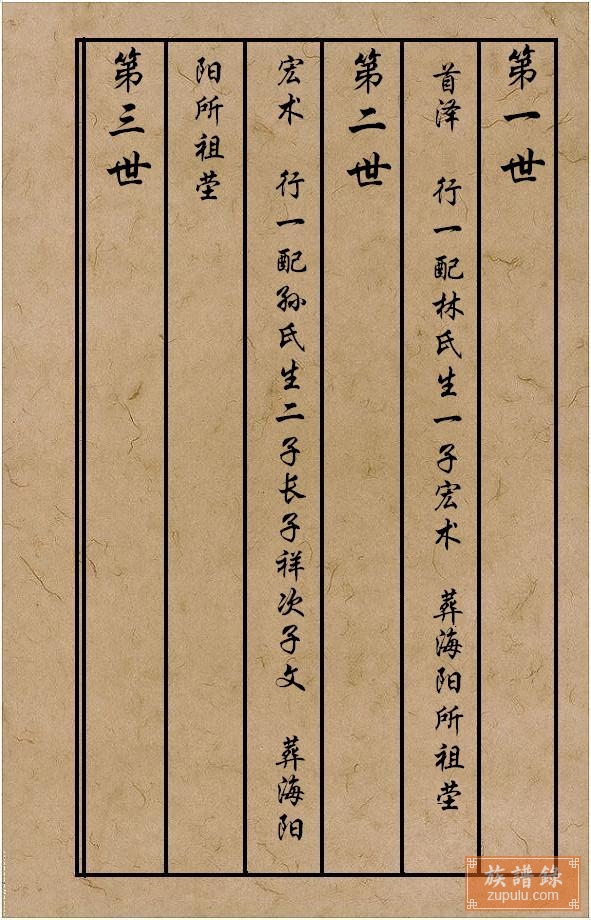 第一世
首泽 行一配林氏生一子宏术 葬海阳所祖茔
第二世
宏术 行一配孙氏生二子长子祥次子文 葬海阳
阳所祖茔
第三世
族譜錄
zupulu.com